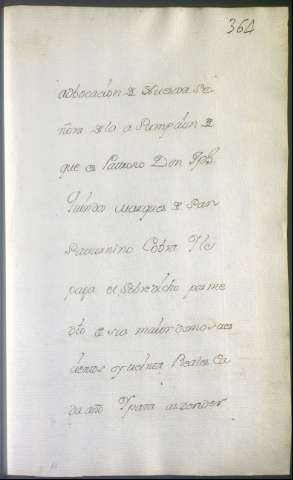 364
advocación de Nuestra Se-
ñora de la a Sumpción de
que es Patrono Don Jph.
Marques de San
Cobra Y le
paga el sobredicho por me
dio de su maiordomo
y Reales Ca
da año Y para atender